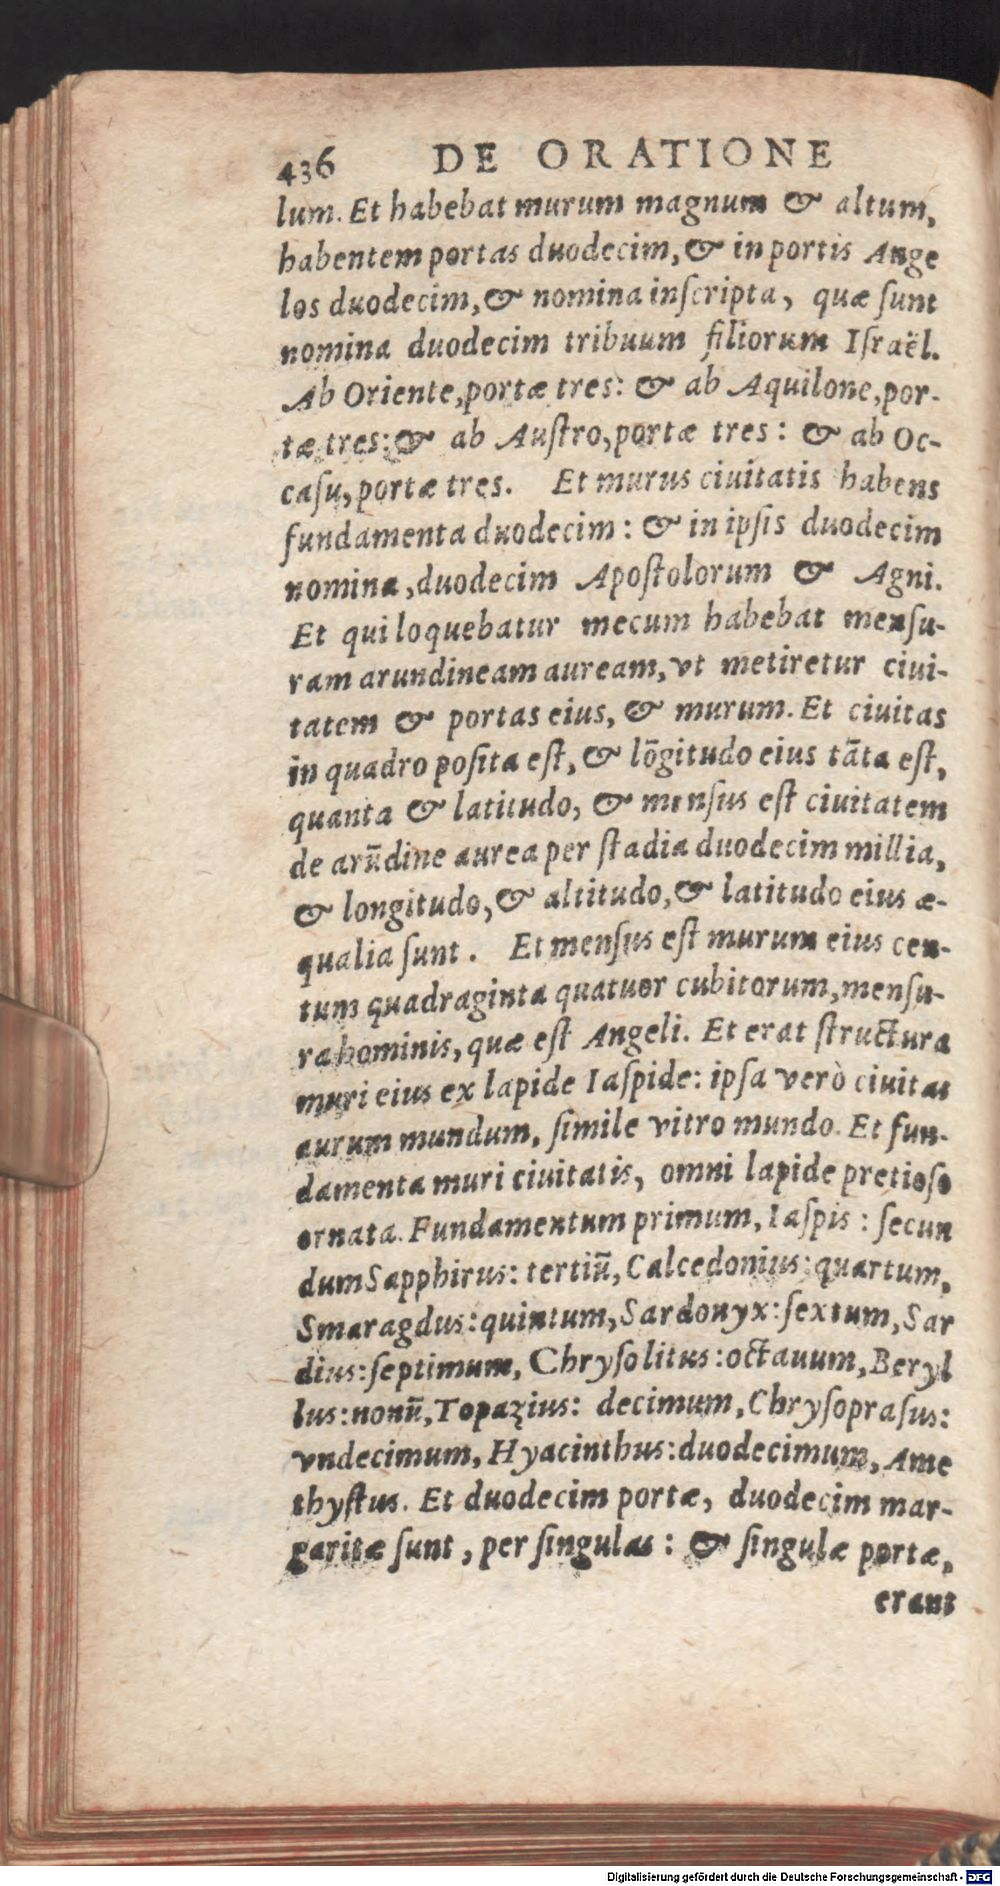 436 DE ORATIONE
lum. Et habebat murum magnum & altum,
habentem portas duodecim, & in portis Ange
los duodecim, & nomina inſcripta, quæ ſunt
nomina duodecim tribuum filiorum Iſraël.
Ab Oriente, portæ tres: & ab Aquilone, por-
tæ tres: & ab Auſtro, portæ tres: & ab Oc-
caſu, portæ tres. Et murus ciuitatis habens
fundamenta duodecim: & in ipſis duodecim
nomina, duodecim Apoſtolorum & Agni.
Et qui loquebatur mecum habebat menſu-
ram arundineam auream, vt metiretur ciui-
tatem & portas eius, & murum. Et ciuitas
in quadro poſita eſt, & lōgitudo eius tāta eſt,
quanta & latitudo, & menſus eſt ciuitatem
de arūdine aurea per ſtadia duodecim millia,
& longitudo, & altitudo, & latitudo eius æ-
qualia ſunt. Et menſus eſt murum eius cen-
tum quadraginta quatuor cubitorum, menſu-
ra hominis, quæ eſt Angeli. Et erat ſtructura
muri eius ex lapide Iaſpide: ipſa verò ciuitas
aurum mundum, ſimile vitro mundo. Et fun-
damenta muri ciuitatis, omni lapide pretioſo
ornata. Fundamentum primum, Iaſpis: ſecun
dum Sapphirus: tertiū, Calcedonius: quartum,
Smaragdus: quintum, Sardonyx: ſextum, Sar
dius: ſeptimum, Chryſolitus: octauum, Beryl
lus: nonū, Topazius: decimum, Chryſopraſus:
vndecimum, Hyacinthus: duodecimum, Ame
thyſtus. Et duodecim portæ, duodecim mar-
garitæ ſunt, per ſingulas: & ſingulæ portæ,
erant
Digitalisierung gefördert durch die Deutsche Forschungsgemeinschaft - DFG